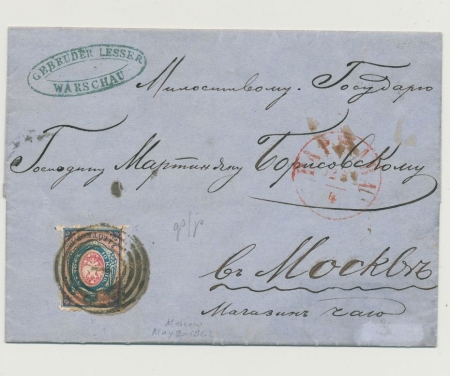 GEBRÜDER LESSER
WARSCHAU
Милостивому Государю
Господину Мартиньяну Борисовскому
въ Москвѣ
Магазинъ чаю